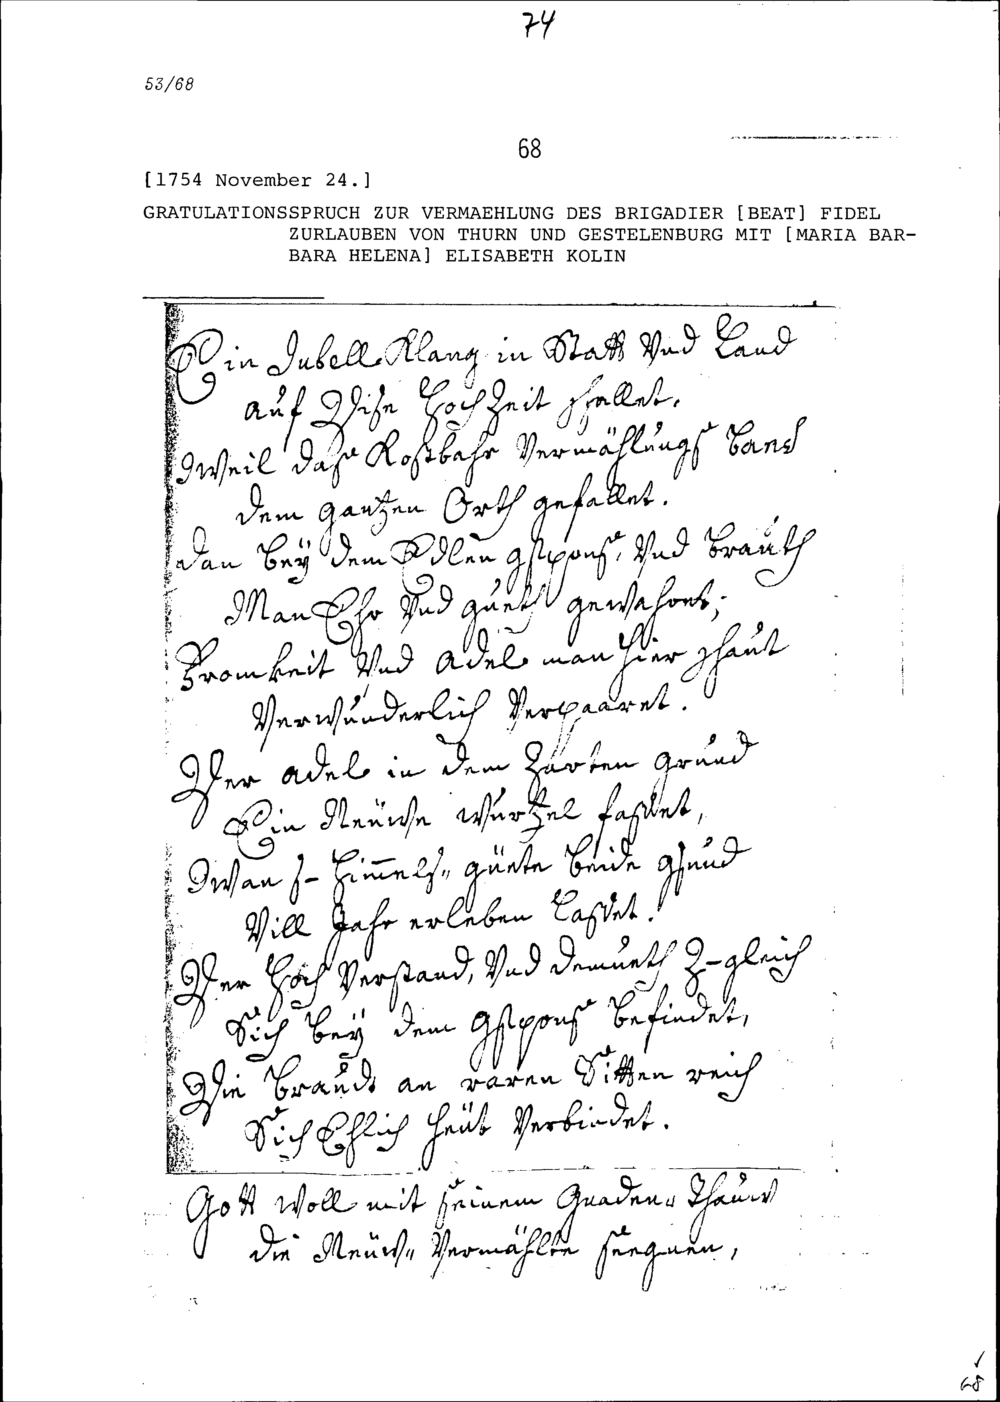 74
53/68
68
[1754 November 24.]
GRATULATIONSSPRUCH ZUR VERMAEHLUNG DES BRIGADIER [BEAT] FIDEL
ZURLAUBEN VON THURN UND GESTELENBURG MIT [MARIA BAR-
BARA HELENA] ELISABETH KOLIN
Ein Jubell Klang in Statt Vnd Land
auf Dise HochZeit schallet,
Weil dass Kostbahr Vermählungs band
dem gantzen Orth gefallet.
dan beÿ dem Edlen gspons, Vnd brauth
Man Ehr Vnd gueth gewahret;
Fromkeit Vnd adel man hier schaut
Verwunderlich Verpaaret.
Der adel in dem Zarten grund
Ein Neüwe wurtzel fasset,
Wan s- Himmels-güete beide gsund
Vill Jahr erleben Lasset.
Der Hoch Verstand, Vnd demueth Z-gleich
Sich beÿ dem gspons befindet,
Die braudt an raren Sitten reich
Sich Ehlich heüt Verbindet.
Gott woll mit seinem Gnaden-Thauw
die Neüw-Vermählte seegnen,
68